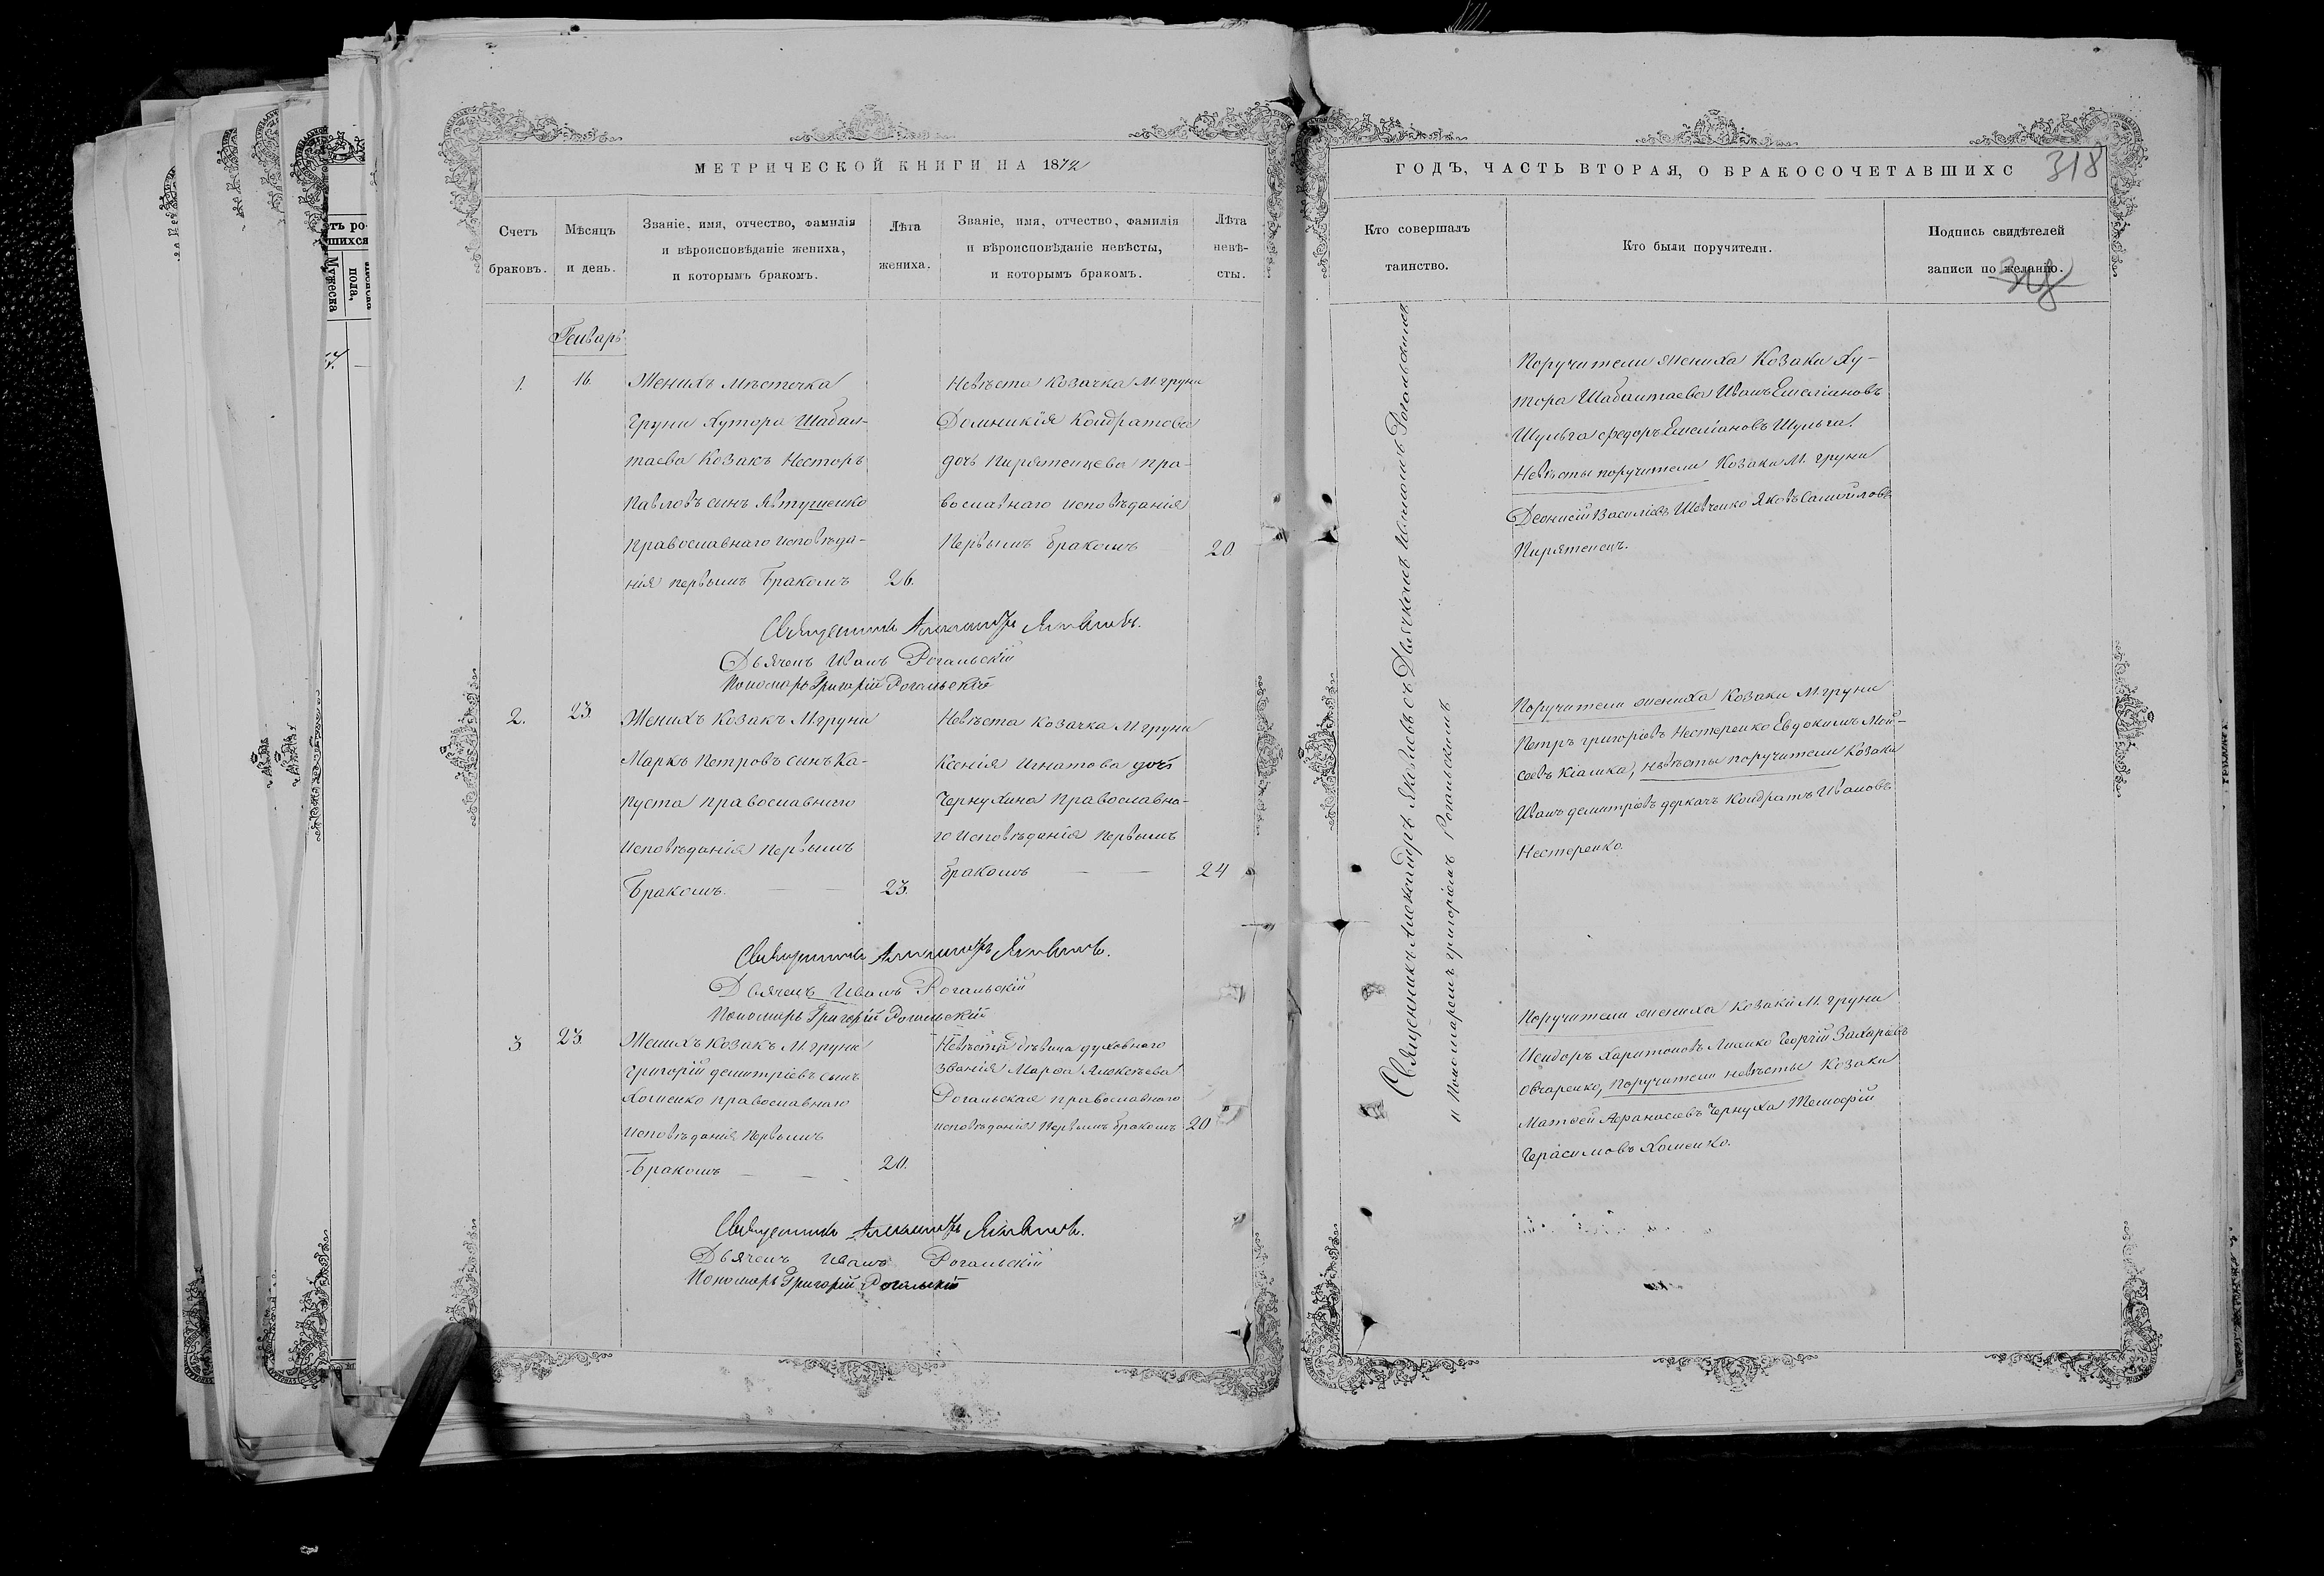 МЕТРИЧЕСКОЙ КНИГИ НА 1872
Счетъ браковъ.
Мѣсяцъ и день.
Званіе, имя, отчество, фамилія
и вѣроисповѣданіе жениха,
и которымъ бракомъ.
Лѣта жениха.
Званіе, имя, отчество, фамилія
и вѣроисповѣданіе невѣсты,
и которымъ бракомъ.
Лѣта невѣ-
сты.
Генварь
1.
16.
Женихъ мѣстечка
Груни Хутора Шабал-
таева Козакъ Несторъ
Павловъ сынъ Явтушенко
Православнаго исповѣда-
нія первымъ Бракомъ
26.
Невѣста Козачка М. Груни
Домникія Кондратова
дочь Пирятенцева пра-
вославнаго исповѣданія
Первымъ бракомъ
20
Священникъ Александръ Яковлевъ.
Дьячекъ Иванъ Рогальскій
Пономарь Григорій Рогальскій
2.
23.
Женихъ Козакъ М. Груни
Маркъ Петровъ сынъ Ка-
пуста православнаго
исповѣданія первымъ
Бракомъ.
23.
Невѣста Козачка М. Груни
Ксенія Игнатова дочь
Чернухина Православна-
го исповѣданія первымъ
бракомъ
24
Священникъ Александръ Яковлевъ.
Дьячекъ Иванъ Рогальскій
Пономарь Григорій Рогальскій
3
23.
Женихъ Козакъ М. Груни
Григорій Демитріевъ сынъ
Хоменко православнаго
исповѣданія Первымъ
Бракомъ
20.
Невѣста дѣвица духовнаго
званія Марѳа Алексѣева
Рогальская православнаго
исповѣданія Первымъ бракомъ
20
Священникъ Александръ Яковлевъ.
Дьячекъ Иванъ Рогальскій
Пономарь Григорій Рогальскій
ГОДЪ, ЧАСТЬ ВТОРАЯ, О БРАКОСОЧЕТАВШИХС
318
Кто совершалъ
таинство.
Кто были поручители.
Подпись свидѣтелей
записи по желанію.
318
Священникъ Александръ Яковлевъ съ Дьячкомъ Иваномъ Рогальскимъ
и Пономаремъ Григоріемъ Рогальскимъ
Поручители жениха Козаки Ху-
тора Шабалтаева Иванъ Емеліановъ
Шульга Федоръ Емеліановъ Шульга.
Невѣсты поручители Козаки М. Груни
Деонисій Василіевъ Шевченко Яковъ Самойловъ
Пирятенецъ.
Поручители жениха Козаки М. Груни
Петръ Григоріевъ Нестеренко Евдокимъ Мой-
сеевъ Кіашка, невѣсты поручители Козаки
Иванъ Демитріевъ Деркачъ Кондратъ Ивановъ
Нестеренко.
Поручители жениха Козаки М. Груни
Исидоръ Харитоновъ Георгій Захаріевъ
Овчаренко, Поручители невѣсты Козаки
Матѳей Афанасіевъ Чернуха Темофій
Герасимовъ Хоменко.